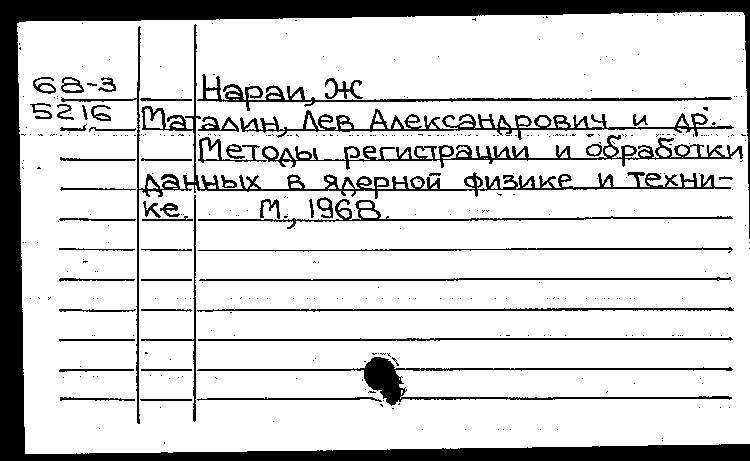 68-3 Нараи, Ж
5216 Маталин, Лев Александрович и др.
Методы регистрации и обработки
данных в ядерной физике и техни-
ке. М., 1968.